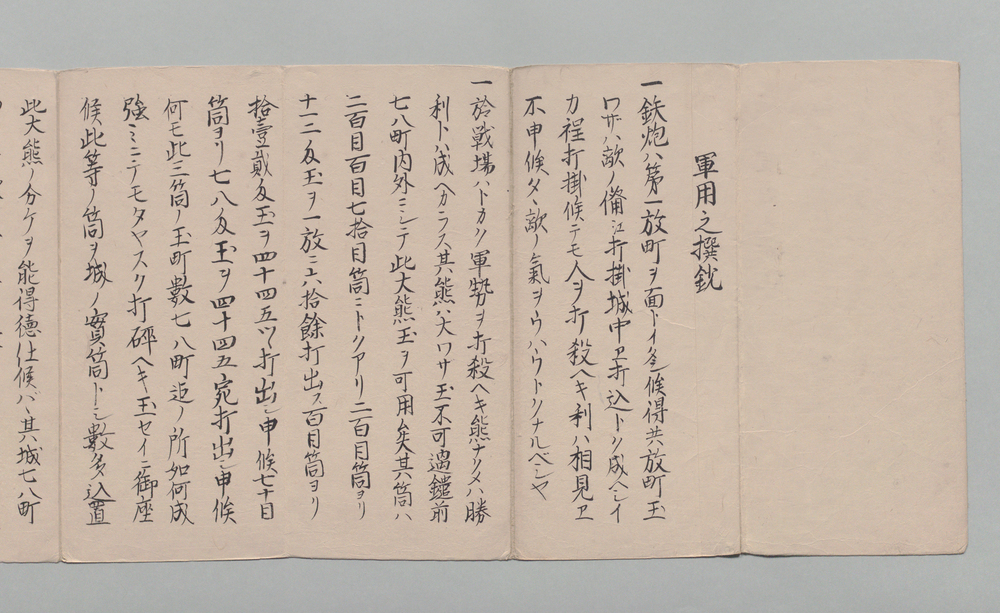 軍用之撰鈔
一鉄炮ハ第一放町ヲ面トイタシ候得共放町玉
ワサハ敵ノ備江打掛城中ヱ打込トノ成ヘシイ
カ程打掛候テモ人ヲ打殺ヘキ利ハ相見ヱ
不申候タヽ敵ノ氣ヲウハウトノナルベシヤ
一於戦場ハトカク軍勢ヲ打殺ヘキ熊ナリメハ勝
利トハ成ヘカラス其熊ハ大ワサ玉不可過鑓前
七八町内外ニシテ此大熊玉ヲ可用矣其筒ハ
二百目百目七拾目筒ニトクアリ二百目筒ヨリ
十二匁玉ヲ一放ニ六拾餘打出ス百目筒ヨリ
拾壹貳匁玉ヲ四十四五ツヽ打出シ申候七十目
筒ヨリ七八匁玉ヲ四十四五宛打出シ申候
何モ此三筒ノ玉町數七八町迄ノ所如何成
強ミニテモタヤスク打碎ヘキ玉セイニ御座
候此等ノ筒ヲ城ノ實筒トシ數多込置
此大熊ノ分ケヲ能得徳仕候バ其城七八町